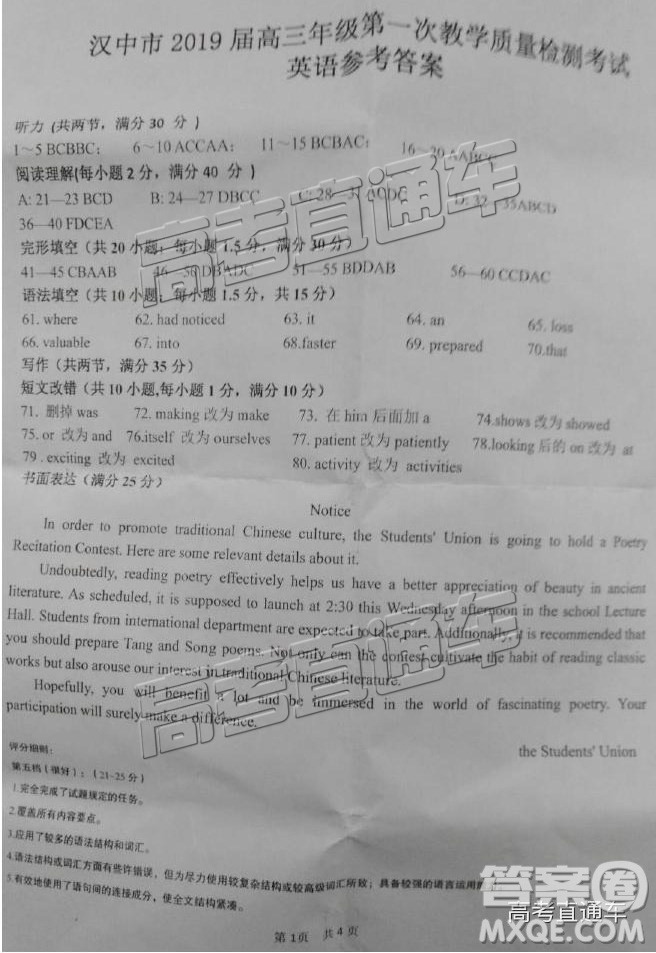 汉中市 2019 届高三年级第一次教学质量检测考试
英语参考答案
听力 (共两节，满分 30 分 )
1~5 BCBBC; 6~10 ACCAA; 11~15 BCBAC; 16~20 AABCC
阅读理解(每小题 2 分，满分 40 分 )
A: 21—23 BCD B: 24—27 DBCC C: 28—31 D: 32—35ABCD
36—40 FDCEA
完形填空（共 20 小题；每小题 1.5 分，满分 30 分）
41—45 CBAAB 46—50 DBADC 51—55 BDDAB 56—60 CCDAC
语法填空（共 10 小题；每小题 1.5 分，共 15 分）
61. where 62. had noticed 63. it 64. an 65. loss
66. valuable 67. into 68.faster 69. prepared 70.that
写作（共两节，满分 35 分）
短文改错（共 10 小题,每小题 1 分，满分 10 分）
71. 删掉 was 72. making 改为 make 73. 在 him 后面加 a 74.shows 改为 showed
75. or 改为 and 76.itself 改为 ourselves 77. patient 改为 patiently 78.looking 后的 on 改为 at
79 . exciting 改为 excited 80. activity 改为 activities
书面表达（满分 25 分）
Notice
In order to promote traditional Chinese culture, the Students' Union is going to hold a Poetry
Recitation Contest. Here are some relevant details about it.
Undoubtedly, reading poetry effectively helps us have a better appreciation of beauty in ancient
literature. As scheduled, it is supposed to launch at 2:30 this Wednesday afternoon in the school Lecture
Hall. Students from international department are expected to take part. Additionally, it is recommended that
you should prepare Tang and Song poems. Not only can the contest cultivate the habit of reading classic
works but also arouse our interest in traditional Chinese literature.
Hopefully, you will benefit a lot and be immersed in the world of fascinating poetry. Your
participation will surely make a difference.
the Students' Union
评分细则：
第五档（很好）：（21-25 分）
1.完全完成了试题规定的任务。
2.覆盖所有内容要点。
3.应用了较多的语法结构和词汇。
4.语法结构或词汇方面有些许错误，但为尽力使用较复杂结构或较高级词汇所致；具备较强的语言运用
5.有效地使用了语句间的连接成分，使全文结构紧凑。
第 1页 共 4 页
高考直通车
高考直通车
答案圈
高考直通车
MXQE.COM